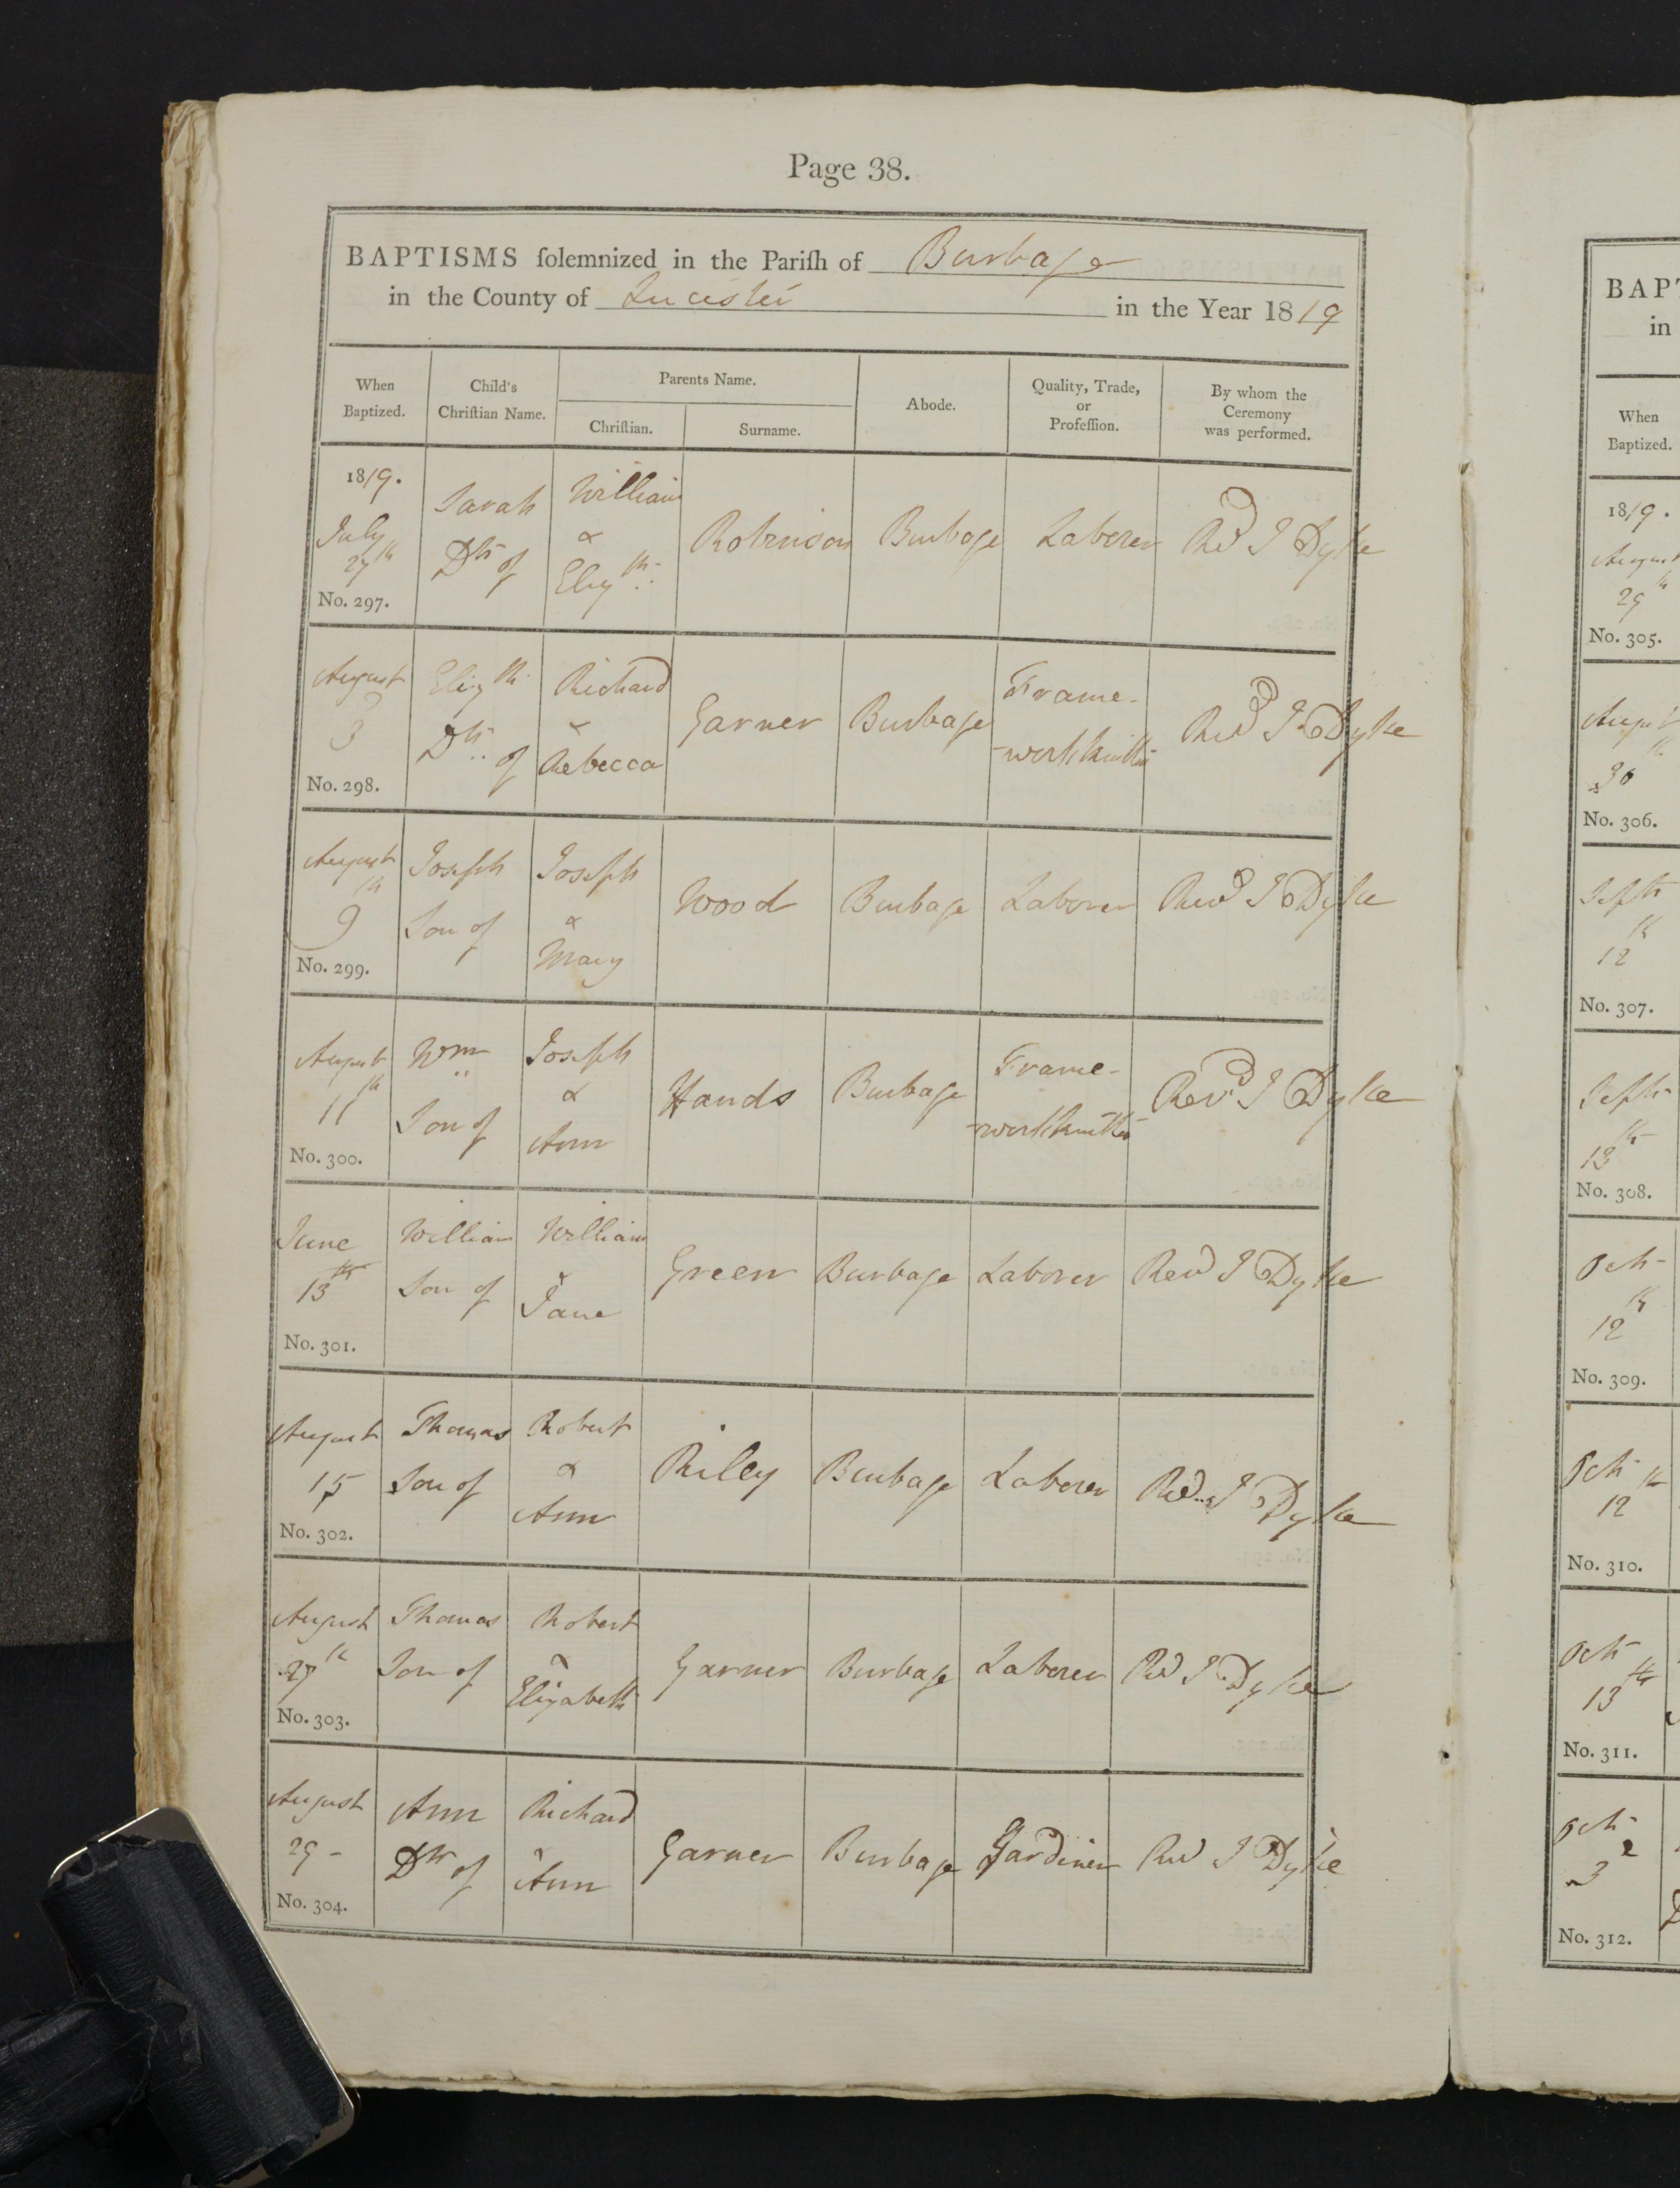 Page 38.
BAPTISMS ſolemnized in the Pariſh of Burbage
in the County of Leicester in the Year 1819
When Baptized.
Child's Chriſtian Name.
Parents Name.
Chriſtian.
Surname.
Abode.
Quality, Trade, or Profeſſion.
By whom the Ceremony was performed.
1819.
July 27th
No. 297.
Sarah
Dtr of
William
&
Elizth
Robinson
Burbage
Laborer
Revd J Dyke
August
3
No. 298.
Elizth
Dtr of
Richard
&
Rebecca
Garner
Burbage
Frame-
-workknitter
Revd J Dyke
August
9th
No. 299.
Joseph
Son of
Joseph
&
Mary
Wood
Burbage
Laborer
Revd J Dyke
August
11th
No. 300.
Wm
Son of
Joseph
&
Ann
Hands
Burbage
Frame-
-workknitter
Revd J Dyke
June
13th
No. 301.
William
Son of
William
&
Jane
Green
Burbage
Laborer
Revd J Dyke
August
15
No. 302.
Thomas
Son of
Robert
&
Ann
Riley
Burbage
Laborer
Revd J Dyke
August
27th
No. 303.
Thomas
Son of
Robert
&
Elizabeth
Garner
Burbage
Laborer
Revd J Dyke
August
29-
No. 304.
Ann
Dtr of
Richard
&
Ann
Garner
Burbage
Gardiner
Revd J Dyke
BAPT
in
When
Baptized.
1819.
August
29th
No. 305.
August
30th
No. 306.
Septr
12th
No. 307.
Septr
13th
No. 308.
Octr
12th
No. 309.
Octr
12th
No. 310.
Octr
13th
No. 311.
Octr
No. 312.